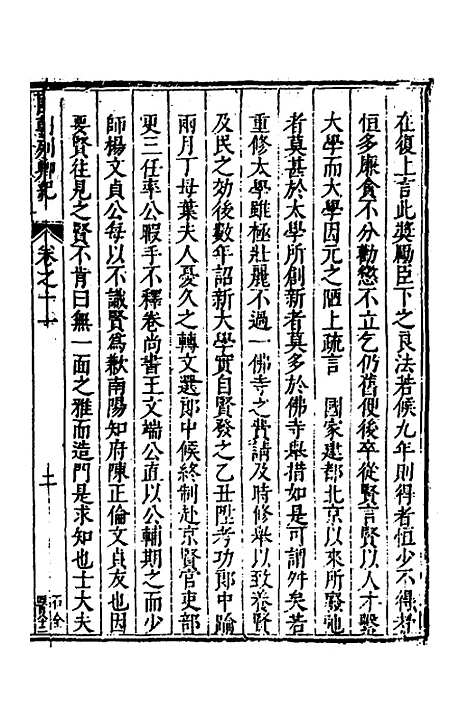 在復上言此獎勵臣下之良法若候九年則得者恒少不得者
恒多廉貪不分勸懲不立乞仍舊便後卒從賢言賢以人才繫
大學而大學因元之陋上疏言 國家建都北京以來所廢弛
者莫甚於太學所創新者莫多於佛寺舉措如是可謂舛矣若
重修太學雖極壯麗不過一佛寺之費請及時修舉以致養賢
及民之効後數年詔新大學實自賢發之乙丑陞考功郎中踰
兩月丁母葉夫人憂久之轉文選郎中候終制赴京賢官吏部
更三任率公暇手不釋卷尚書王文端公直以公輔期之而少
師楊文貞公每以不識賢為歉南陽知府陳正倫文貞友也因
要賢往見之賢不肯曰無一面之雅而造門是求知也士大夫
列卿紀 卷之十一 十二